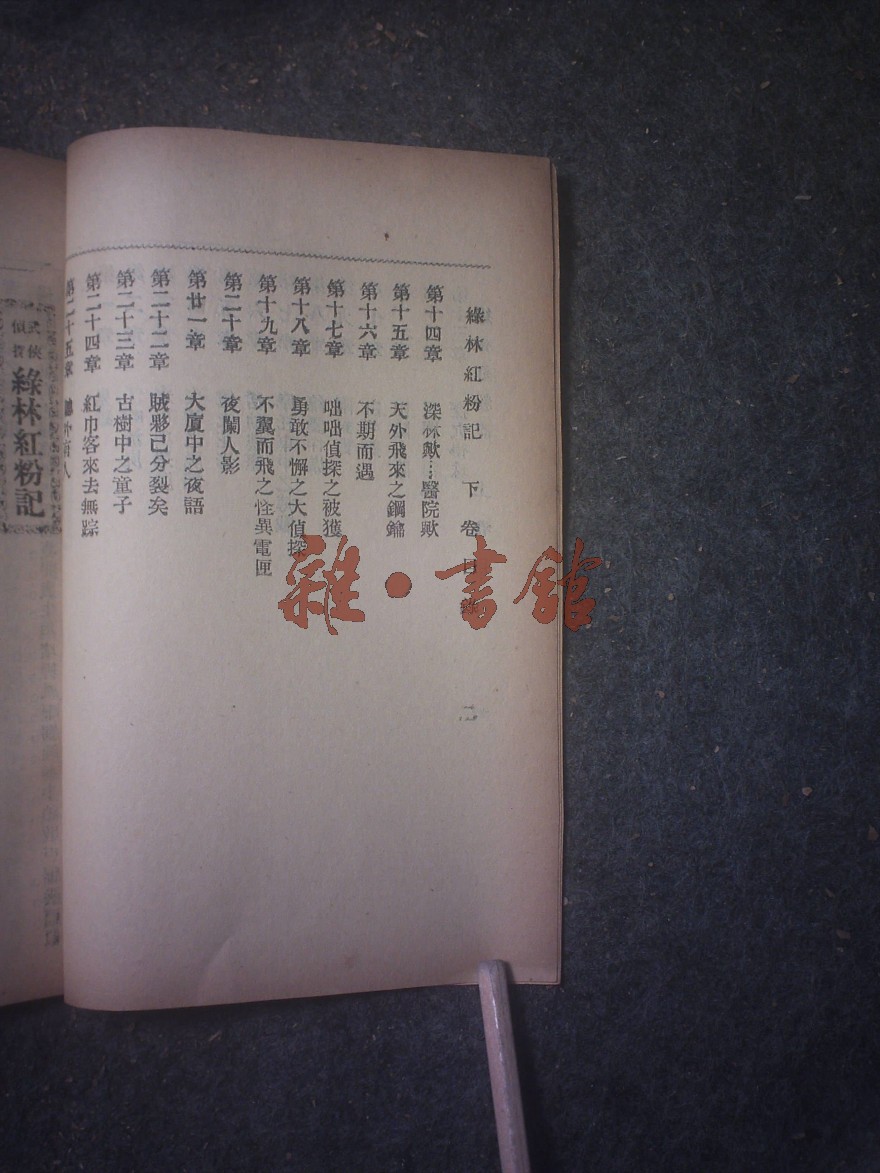 綠林紅粉記 下卷目錄 二
第十四章 深林歟…醫院歟
第十五章 天外飛來之鋼鑰
第十六章 不期而遇
第十七章 咄咄偵探之被獲
第十八章 勇敢不懈之大偵探
第十九章 不翼而飛之怪異電匣
第二十章 夜闌人影
第廿一章 大廈中之夜語
第二十二章 賊夥已分裂矣
第二十三章 古樹中之童子
第二十四章 紅巾客來去無踪
第二十五章 外有人
武俠
偵探
綠林紅粉記
雜·書館